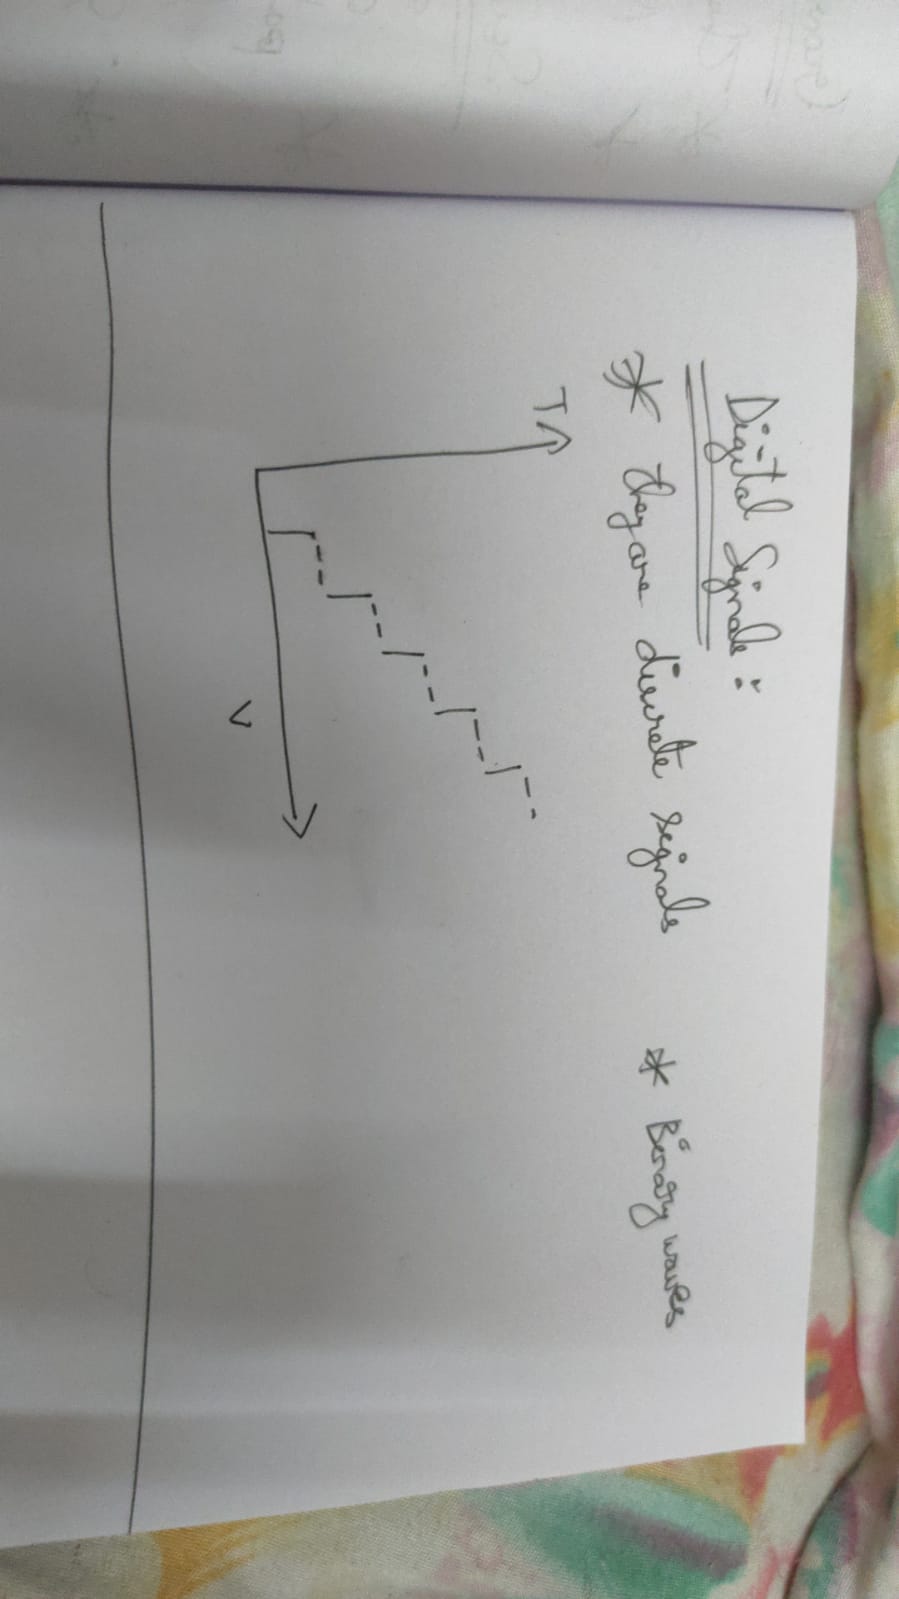 Digital Signals:
* they are discrete signals * Binary waves
T
V